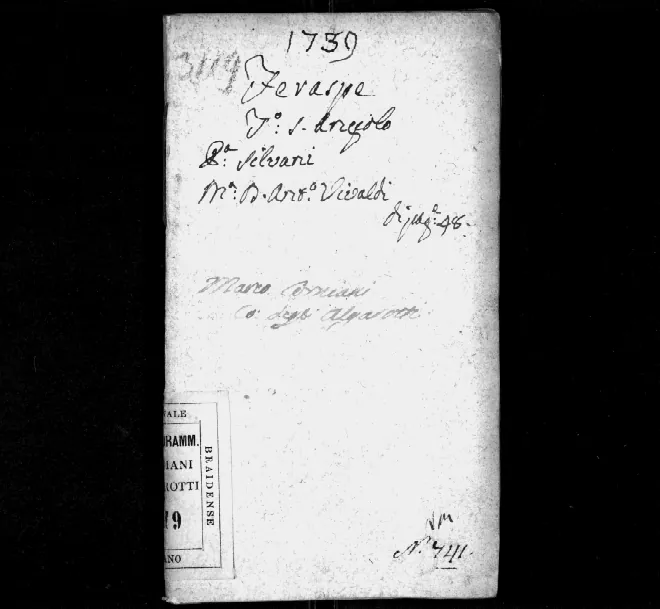 1739
3119
Feraspe
T.º S. Angiolo
P.ª Silvani
M.ª D. Ant.º Vivaldi
di pag.e 48.
Marco Corniani
Co. degli Algarotti
NALE
DRAMM.
IANI
ROTTI
9
ANO
BRAIDENSE
N.º 741.